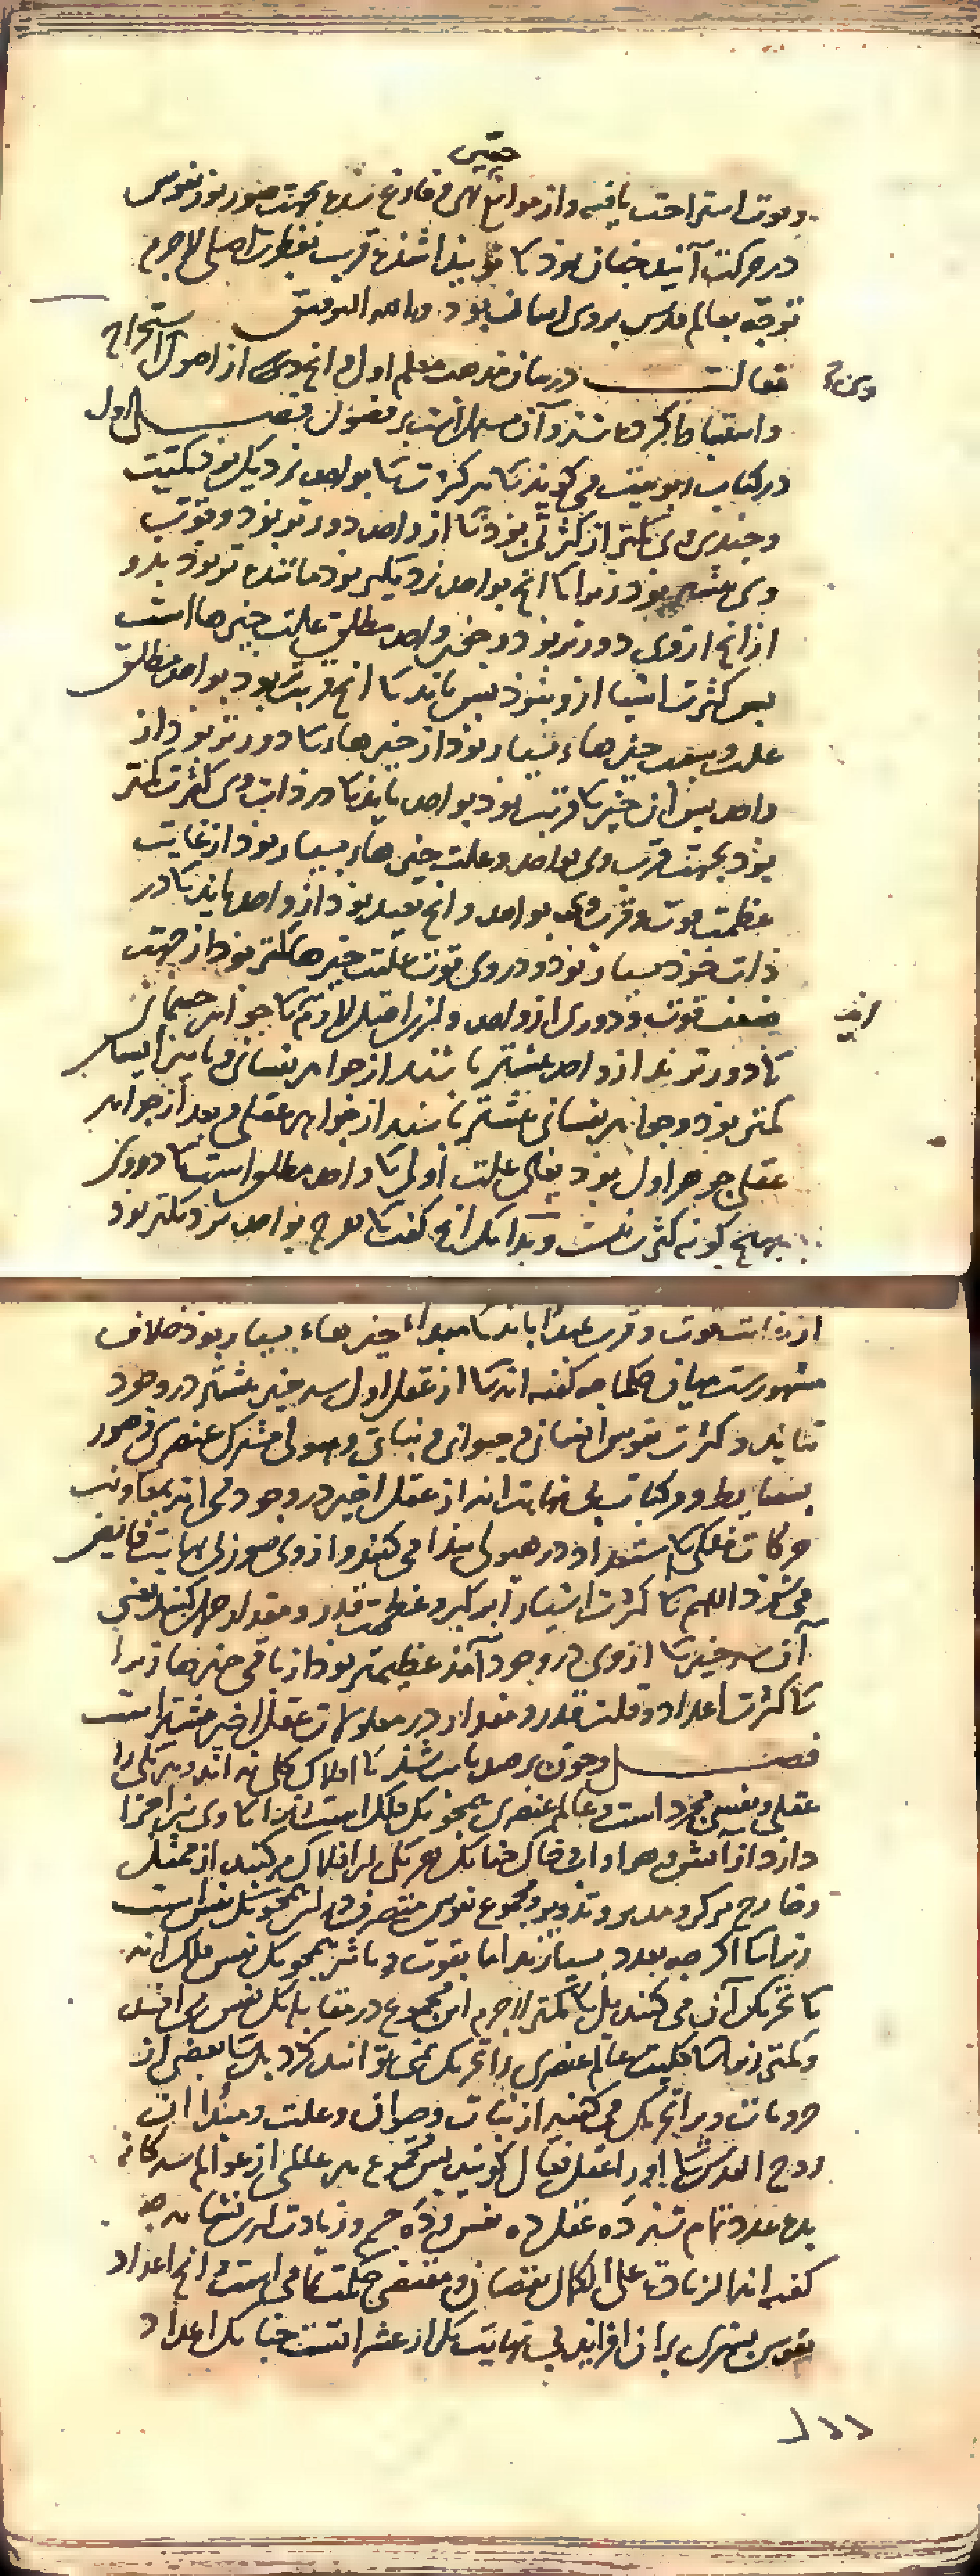 حسّی
و موت استراحت یافته و از موانع حسی فارغ شده بجهت صور بود نفوس
در حرکت آیند چنان بود کا نو پیدا شده قریب بفطرت اصلی لاجرم
توجّه بعالم قدس بروی اسان بود و بالله التوفیق
مقالت در بیان مذهب معلم اول و انچ وی از اصول استخراج
و استنباط کرده شد و آن مشتمل است بر فصول فصل اول
در کتاب می گویند کا هر کثرت کا بواحد نزدیک بود کمیت
و چندی وی کمتر از کثرتی بود کا از واحد دورتر بود و قوت
وی بیشتر بود زیرا کا انچ بواحد نزدیکتر بود ماننده تر بود بدو
از انچ از وی دورتر بود و چون واحد مطلق علت چیزها است
پس کثرت اشیا ازو بود پس باید کا انچ قریب بود بواحد مطلق
علت چیزهاء بسیار بود از چیزهاء کا دورتر بود از
واحد پس ان چیز کا قریب بود بواحد باید کا در ذات وی کثرت کمتر
بود بجهت قرب وی بواحد و علت چیزهاء بسیار بود از غایت
عظمت قوت و قرب وی بواحد و انچ بعید بود از واحد باید کا در
ذات خود بسیار بود و در وی قوت علّت چیزها کمتر بود از جهت
ضعف قوت و دوری از واحد و ازین اصل لازم کا جواهر جسمانی
کا دورتر اند از واحد بیشتر باشند از جواهر نفسانی و تاثیر ایشان
کمتر بود و جواهر نفسانی بیشتر باشند از جواهر عقلی و بعد از جواهر
عقلی جوهر اول بود یعنی علت اولی کا واحد مطلق است کا درو
بهیچ گونه کثرت نیست و بدانک انچ گفت کا هر چ بواحد نزدیکتر بود
از غایت قوت و قرب بمبدا باید کا مبداء چیزهاء بسیار بود خلاف
مشهورست میان حکما چه گفته اند کا از عقل اول سه چیز بیشتر در وجود
نیاید و کثرت نفوس انسانی و حیوانی و نباتی و هیولی مشترک عنصری و صور
بسایط و مرکبات بی نهایت اند از عقل اخیر در وجود می اید بمعاونت
حرکات فلکی کا استعداد در هیولی پیدا می کنند و از وی صور بی نهایت فایض
می شود اللهم کا کثرت اشیا را بر کبر و عظمت قدر و مقدار حمل کنند یعنی
آن سه چیز کا از وی در وجود آمد عظیمتر بود از باقی چیزها زیرا
کا کثرت اعداد و قلت قدر و مقدار در معلولات عقل اخیر بیشتر است
فصل و چون برصد ثابت شد کا افلاک کلی نه اند و هر یکی را
عقلی و نفسی مجرد است و عالم عنصری همچو یک فلک است زیرا کا وی نیز اجزا
دارد از آتش و هوا و آب و خاک چنانک هر یکی از افلاک مرکبند از ممثل
و خارج مرکز و مدیر و تدویر و مجموع نفوس متصرف در این همچو یک نفس است
زیرا کا اگر چه بعدد بسیارند اما بقوت و تاثیر همچو یک نفس فلک اند
کا تحریک آن می کند بل کا کمتر لاجرم این مجموع در مقابله یک نفس می افتند
و کمتر زیرا کا کلیت عالم عنصری را تحریک نمی توانند کرد بل کا بعضی از
جزویات ویرا تحریک می کنند از نبات و حیوان و علت و مبداء ان
روح القدس کا او را عقل فعال گویند پس مجموع هر عالمی از عوالم سه گانه
بده عدد تمام شد ده عقل ده نفس و ده جسم و زیادت برین نشاید چه
گفته اند الزیادة علی الکمال نقصان و مقتضی حکمت تمامی است و انچ اعداد
نفوس بشری بران افزاید بی نهایت بکل از عشر است چنانک اعداد